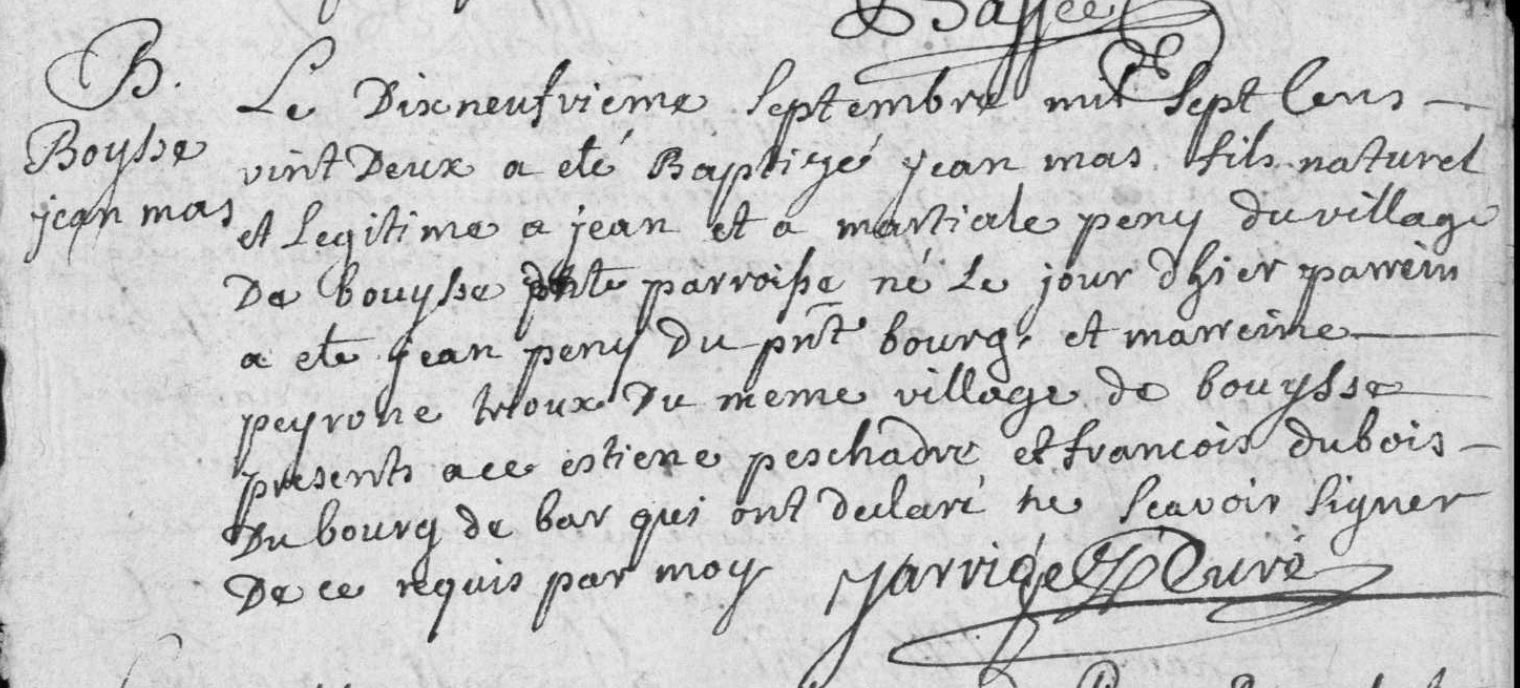 B.
Boysse
jean mas
Le Dixneufvieme Septembre mil Sept Cens
vint Deux a eté Baptizé jean mas fils naturel
et Legitime a jean et a martiale peny du village
De bouysse pnte parroisse né Le jour dhier parrein
a ete jean peny Du pnt bourg, et marreine
peyrone trioux Du meme village de bouysse
presents a ce estiene peschadre et francois dubois
Du bourg de bar qui ont declaré ne Scavoir Signer
De ce requis par moy Jarrige Curé